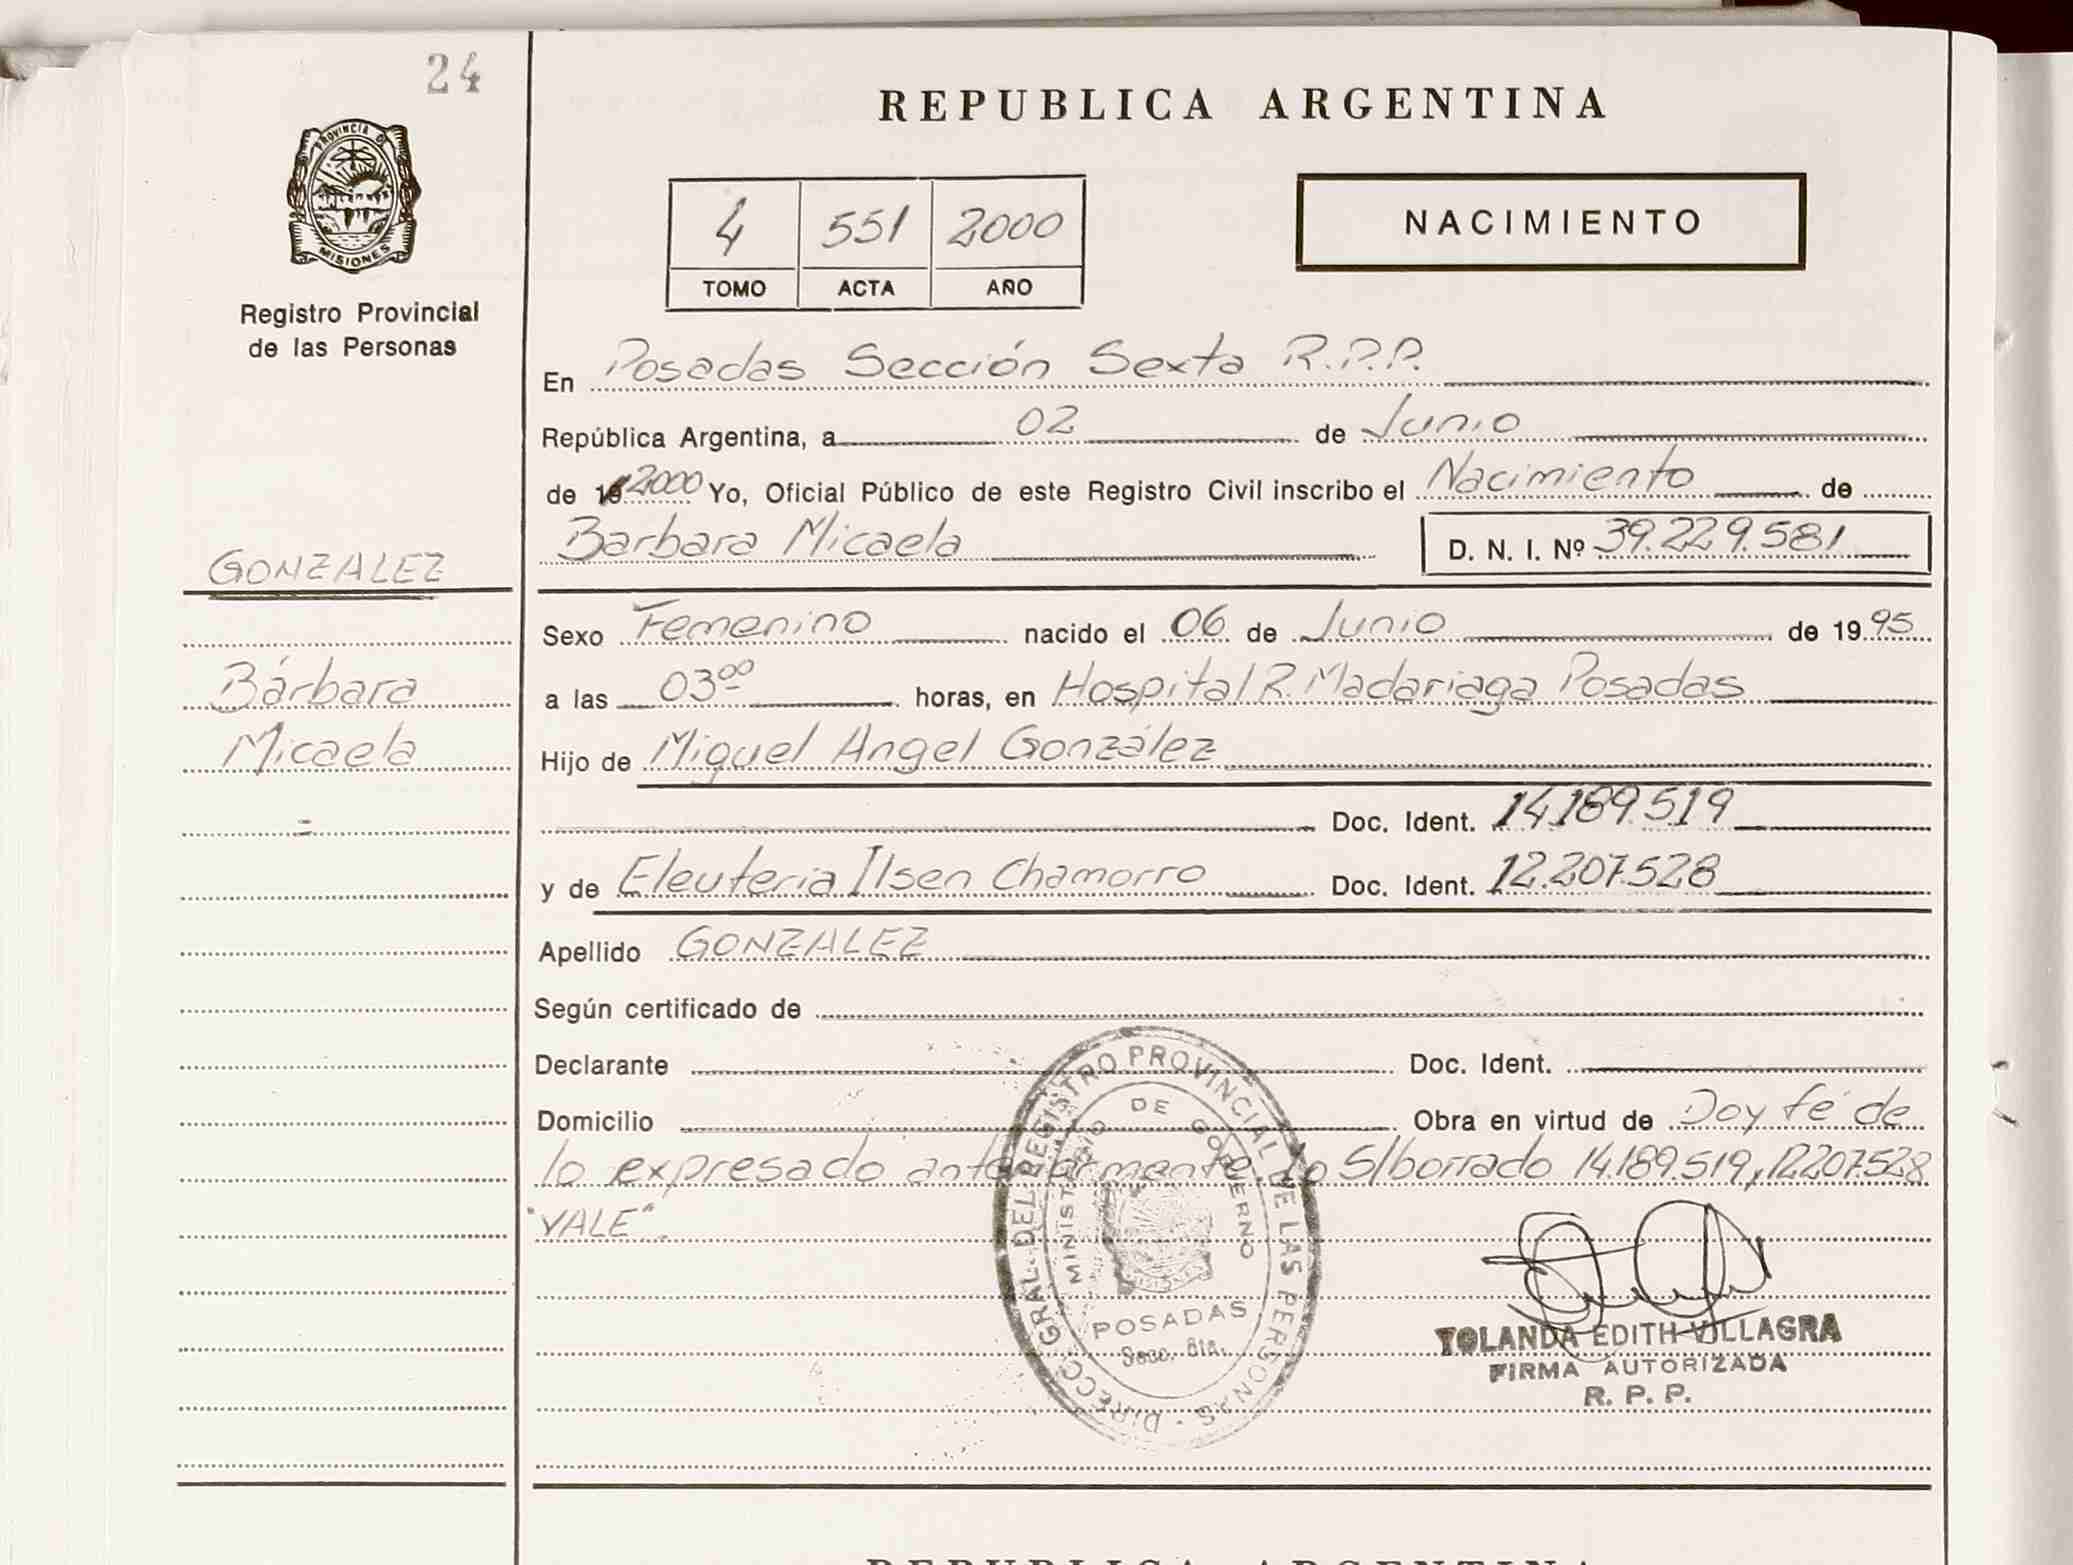 24
REPUBLICA ARGENTINA
PROVINCIA D
MISIONES
Registro Provincial
de las Personas
4 551 2000
TOMO ACTA AÑO
NACIMIENTO
En Posadas Sección Sexta R.P.P.
República Argentina, a 02 de Junio
de 19 2000 Yo, Oficial Público de este Registro Civil inscribo el Nacimiento de
Barbara Micaela D. N. I. Nº 39.229.581
GONZALEZ
Bárbara
Micaela
=
Sexo Femenino nacido el 06 de Junio de 1995
a las 03⁰⁰ horas, en Hospital R. Madariaga Posadas
Hijo de Miguel Angel González
Doc. Ident. 14.189.519
y de Eleuteria Ilsen Chamorro Doc. Ident. 12.207.528
Apellido GONZALEZ
Según certificado de
Declarante Doc. Ident.
Domicilio Obra en virtud de Doy fé de
lo expresado anteriormente. Lo S/borrado 14.189.519, 12.207.528
"VALE".
DIRECC. GRAL. DEL REGISTRO PROVINCIAL DE LAS PERSONAS -
MINISTERIO DE GOBIERNO
POSADAS
Secc. 6ta.
YOLANDA EDITH VILLAGRA
FIRMA AUTORIZADA
R. P. P.
REPUBLICA ARGENTINA